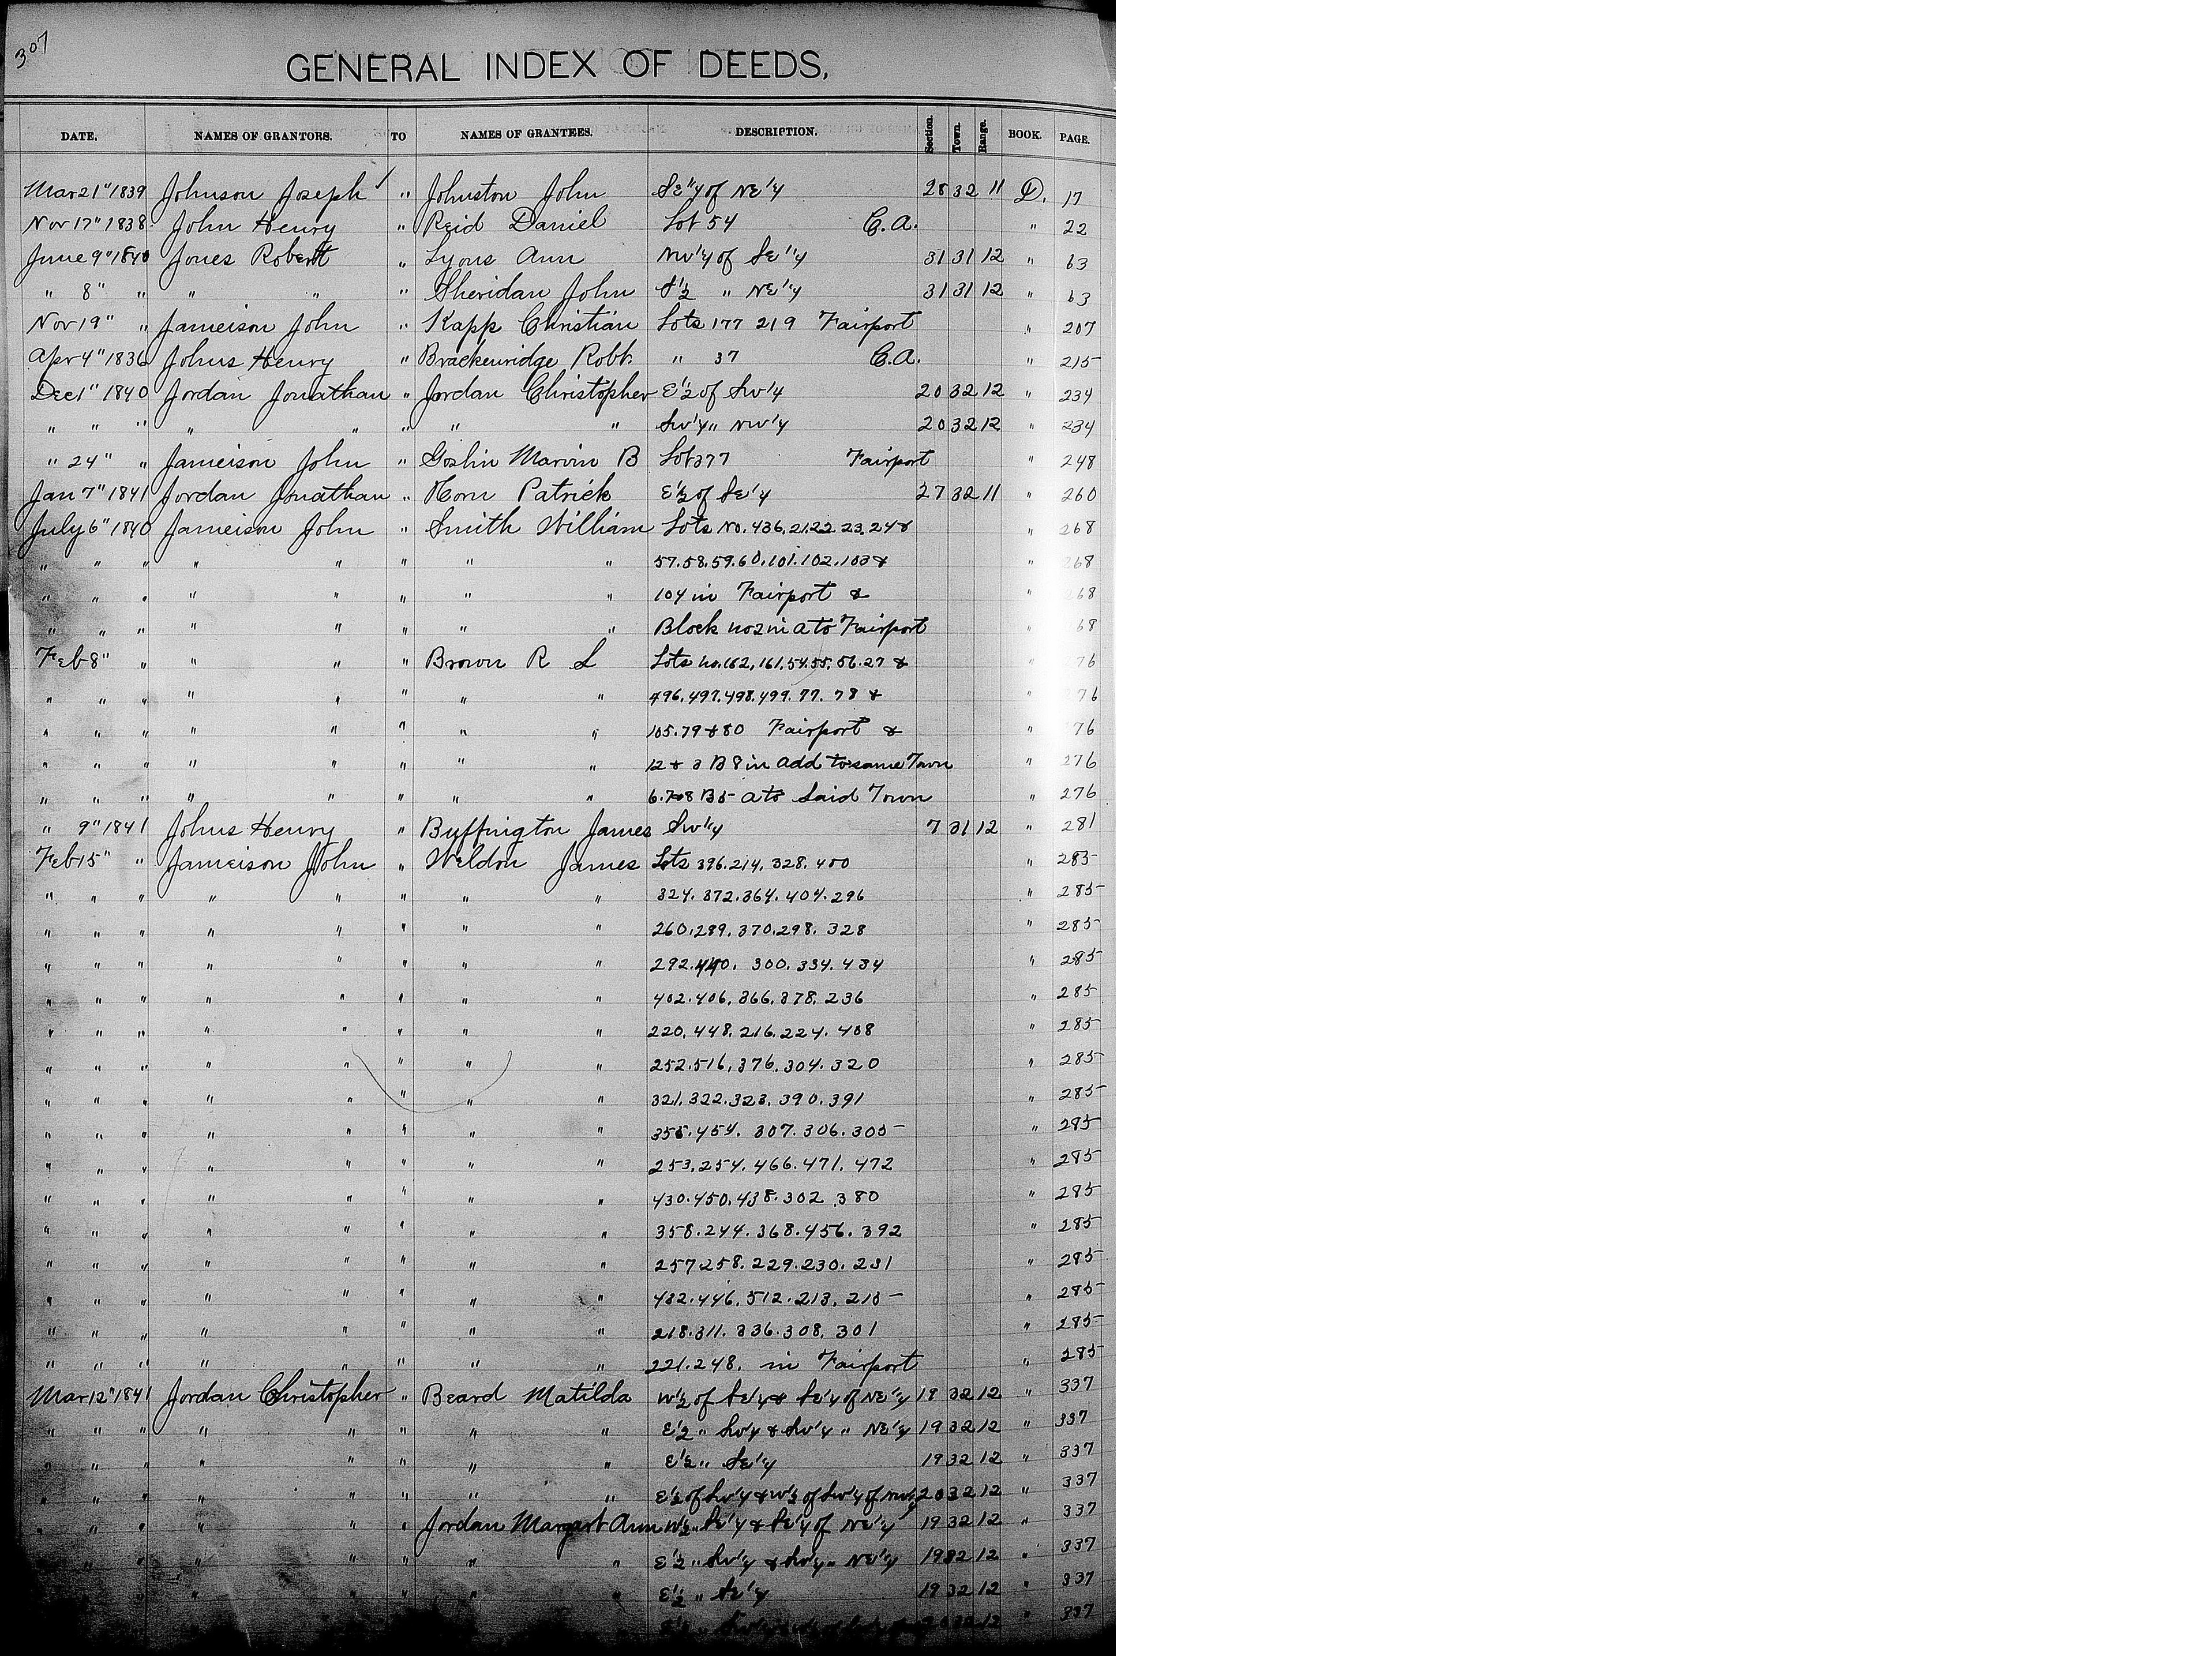 307
GENERAL INDEX OF DEEDS.
DATE. NAMES OF GRANTORS. TO NAMES OF GRANTEES. DESCRIPTION. Section. Town. Range. BOOK. PAGE.
Mar 21" 1839 Johnson Joseph " Johnston John SE 1/4 of NE 1/4 28 32 11 D. 17
Nov 17" 1838 John Henry " Reid Daniel Lot 54 C.A. " 22
June 9" 1840 Jones Robert " Lyons Ann NW 1/4 of SE 1/4 31 31 12 " 63
" 8" " " " " Sheridan John S 1/2 " NE 1/4 31 31 12 " 63
Nov 19" " Jameison John " Kapp Christian Lots 177 219 Fairport " 207
Apr 4" 1836 Johns Henry " Brackenridge Robt. " 37 C.A. " 215
Dec 1" 1840 Jordan Jonathan " Jordan Christopher E 1/2 of SW 1/4 20 32 12 " 234
" " " " " " " " SW 1/4 " NW 1/4 20 32 12 " 234
" 24" " Jameison John " Goslin Marvin B Lot 377 Fairport " 248
Jan 7" 1841 Jordan Jonathan " Horn Patrick E 1/2 of SE 1/4 27 32 11 " 260
July 6" 1840 Jameison John " Smith William Lots No. 436. 21.22. 23. 24 & " 268
" " " " " " " " 57. 58. 59. 60. 101. 102. 103 & " 268
" " " " " " " " 104 in Fairport & " 68
" " " " " " " " Block no 2 in A to Fairport " 68
Feb 8" " " " " Brown R S Lots no. 162, 161. 54. 55. 56. 27 & " 76
" " " " " " " " 496. 497. 498. 499. 77. 78 & " 76
" " " " " " " " 105. 79 & 80 Fairport & " 76
" " " " " " " " 12 & 3 B 8 in Add to same Town " 276
" " " " " " " " 6. 7 & 8 B 5 A to Said Town " 276
" 9" 1841 Johns Henry " Buffington James SW 1/4 7 31 12 " 281
Feb 15" " Jameison John " Weldon James Lots 396. 214. 328. 400 " 285
" " " " " " " " 324. 372. 364. 404. 296 " 285
" " " " " " " " 260. 289. 370. 298. 328 " 285
" " " " " " " " 292. 440. 300. 334. 434 " 285
" " " " " " " " 402. 406. 366. 378. 236 " 285
" " " " " " " " 220. 448. 216. 224. 408 " 285
" " " " " " " " 252. 516. 376. 304. 320 " 285
" " " " " " " " 321. 322. 323. 390. 391 " 285
" " " " " " " " 355. 454. 307. 306. 305 " 285
" " " " " " " " 253. 254. 466. 471. 472 " 285
" " " " " " " " 430. 450. 438. 302. 380 " 285
" " " " " " " " 358. 244. 368. 456. 392 " 285
" " " " " " " " 257 258. 229. 230. 231 " 285
" " " " " " " " 432. 446. 512. 213. 215 " 285
" " " " " " " " 218. 311. 336. 308. 301 " 285
" " " " " " " " 221. 248. in Fairport " 285
Mar 12" 1841 Jordan Christopher " Beard Matilda W 1/2 of SE 1/4 & SE 1/4 of NE 1/4 19 32 12 " 337
" " " " " " " " E 1/2 " SW 1/4 & SW 1/4 " NE 1/4 19 32 12 " 337
" " " " " " " " E 1/2 " SE 1/4 19 32 12 " 337
" " " " " " " " E 1/2 of SW 1/4 & W 1/2 of SW 1/4 of NW 1/4 20 32 12 " 337
" " " " " " Jordan Margart Ann W 1/2 " SE 1/4 & SE 1/4 of NE 1/4 19 32 12 " 337
" " " " " " " E 1/2 " SW 1/4 & SW 1/4 " NE 1/4 19 32 12 " 337
" " " " " " E 1/2 " SE 1/4 19 32 12 " 337
E 1/2 " 20 32 12 " 337